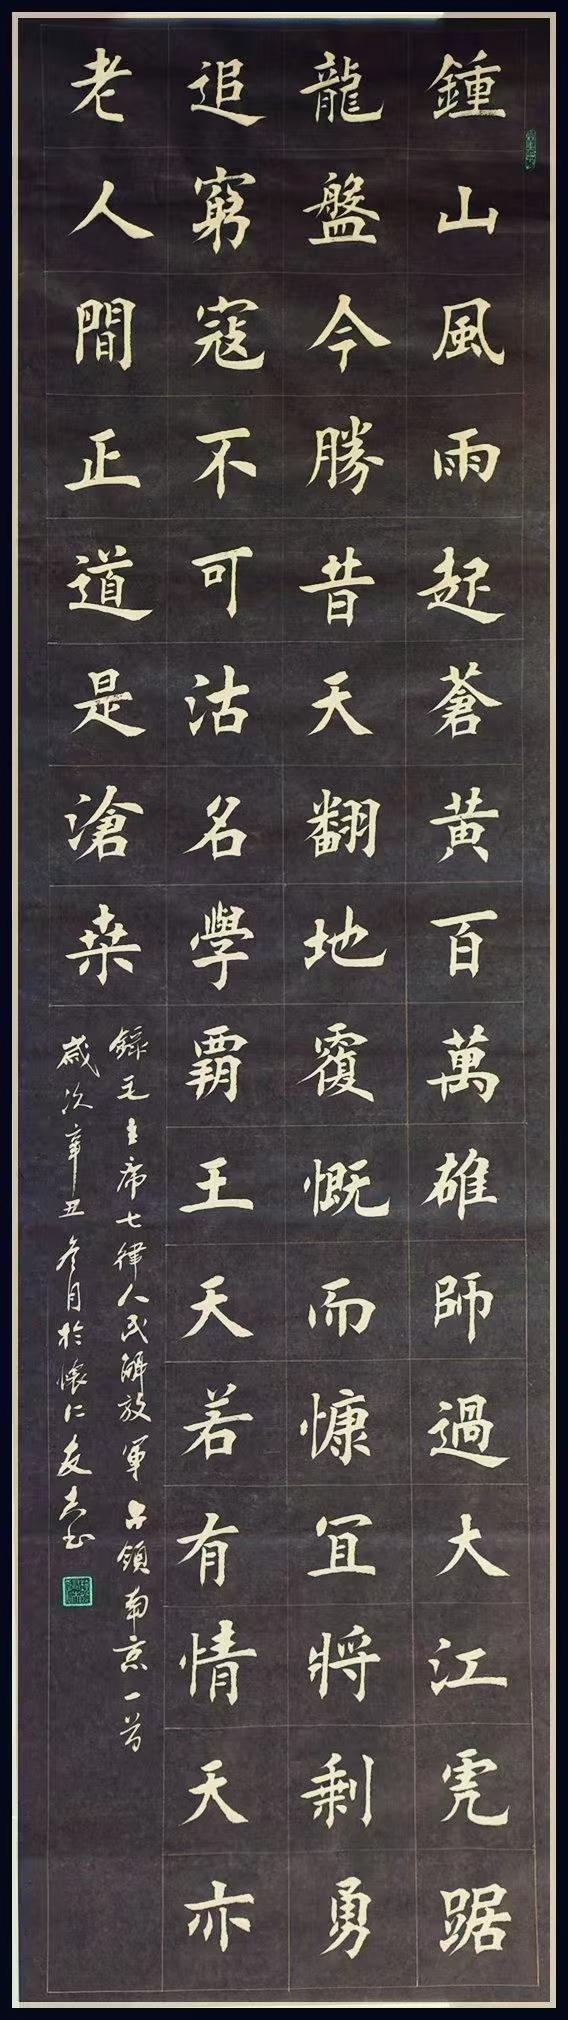 鍾山風雨起蒼黄百萬雄師過大江虎踞
龍盤今勝昔天翻地覆慨而慷宜將剩勇
追窮寇不可沽名學霸王天若有情天亦
老人間正道是滄桒
錄毛主席七律人民解放軍占領南京一首
歲次辛丑冬月於懷仁友志书